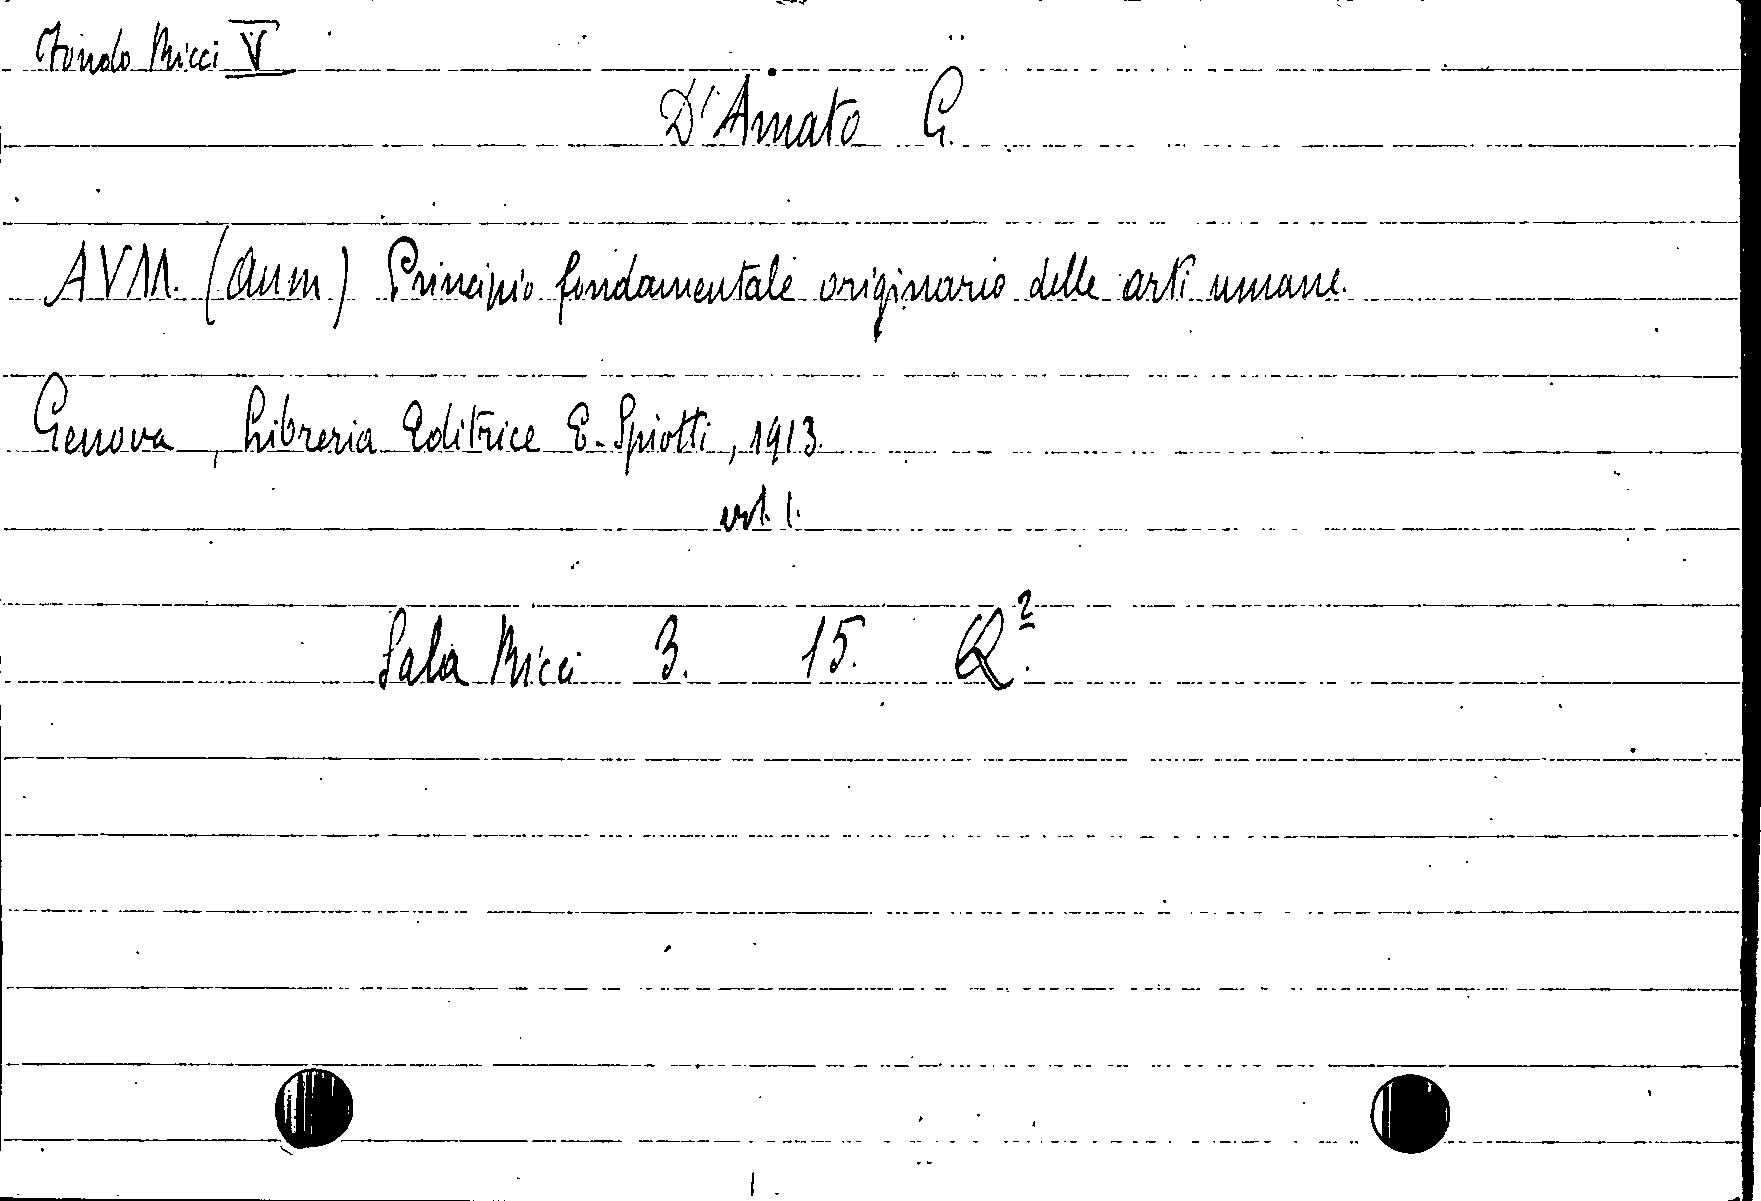 Fondo Ricci V
D'Amato G.
AVM. (Aum) Principio fondamentale originario delle arti umane.
Genova, Libreria Editrice E. Spiotti, 1913.
vol. 1.
Sala Ricci 3. 15. Q².